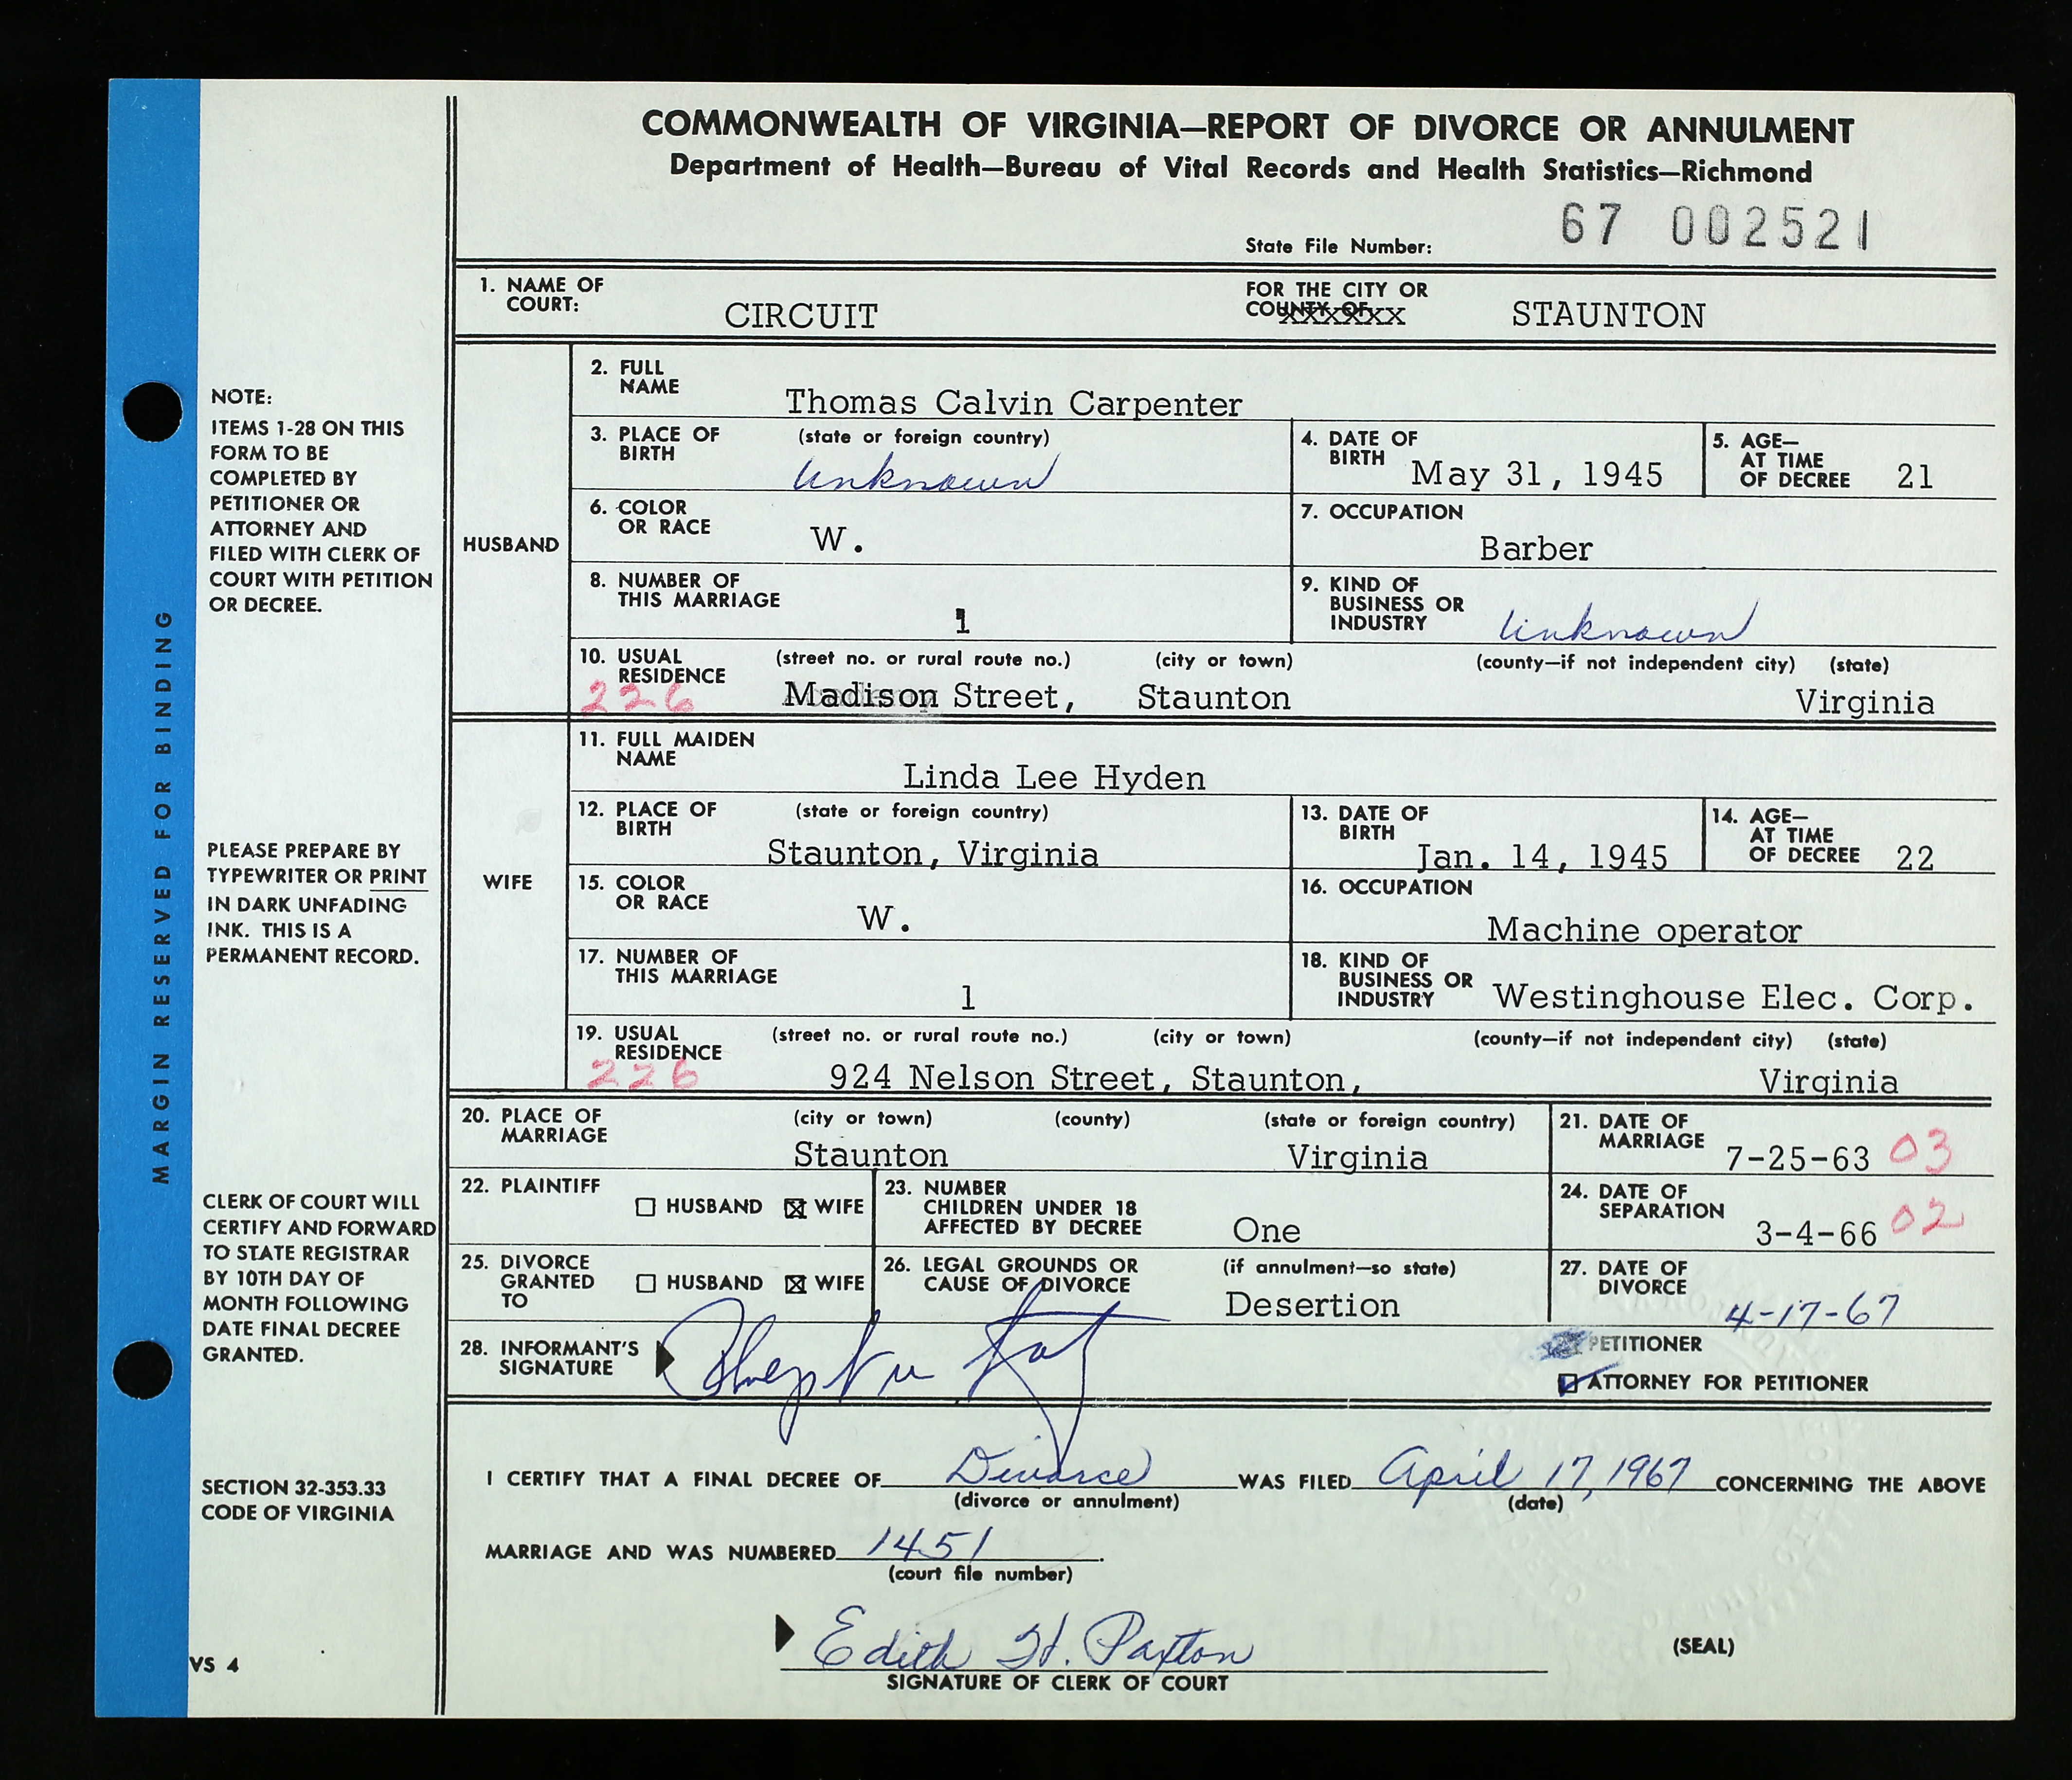 COMMONWEALTH OF VIRGINIA—REPORT OF DIVORCE OR ANNULMENT
Department of Health—Bureau of Vital Records and Health Statistics—Richmond
State File Number: 67 002521
1. NAME OF COURT: CIRCUIT FOR THE CITY OR COUNTY OF STAUNTON
HUSBAND
2. FULL NAME Thomas Calvin Carpenter
3. PLACE OF BIRTH (state or foreign country) Unknown
4. DATE OF BIRTH May 31, 1945
5. AGE— AT TIME OF DECREE 21
6. COLOR OR RACE W.
7. OCCUPATION Barber
8. NUMBER OF THIS MARRIAGE 1
9. KIND OF BUSINESS OR INDUSTRY Unknown
10. USUAL RESIDENCE (street no. or rural route no.) (city or town) (county—if not independent city) (state)
226 Madison Street, Staunton Virginia
WIFE
11. FULL MAIDEN NAME Linda Lee Hyden
12. PLACE OF BIRTH (state or foreign country) Staunton, Virginia
13. DATE OF BIRTH Jan. 14, 1945
14. AGE— AT TIME OF DECREE 22
15. COLOR OR RACE W.
16. OCCUPATION Machine operator
17. NUMBER OF THIS MARRIAGE 1
18. KIND OF BUSINESS OR INDUSTRY Westinghouse Elec. Corp.
19. USUAL RESIDENCE (street no. or rural route no.) (city or town) (county—if not independent city) (state)
226 924 Nelson Street, Staunton, Virginia
20. PLACE OF MARRIAGE (city or town) (county) (state or foreign country) Staunton Virginia
21. DATE OF MARRIAGE 7-25-63 03
22. PLAINTIFF HUSBAND WIFE
23. NUMBER CHILDREN UNDER 18 AFFECTED BY DECREE One
24. DATE OF SEPARATION 3-4-66 02
25. DIVORCE GRANTED TO HUSBAND WIFE
26. LEGAL GROUNDS OR CAUSE OF DIVORCE (if annulment—so state) Desertion
27. DATE OF DIVORCE 4-17-67
28. INFORMANT'S SIGNATURE
PETITIONER
ATTORNEY FOR PETITIONER
I CERTIFY THAT A FINAL DECREE OF Divorce WAS FILED April 17, 1967 CONCERNING THE ABOVE
(divorce or annulment) (date)
MARRIAGE AND WAS NUMBERED 1451.
(court file number)
Edith H. Paxton
SIGNATURE OF CLERK OF COURT
(SEAL)
MARGIN RESERVED FOR BINDING
NOTE:
ITEMS 1-28 ON THIS
FORM TO BE
COMPLETED BY
PETITIONER OR
ATTORNEY AND
FILED WITH CLERK OF
COURT WITH PETITION
OR DECREE.
PLEASE PREPARE BY
TYPEWRITER OR PRINT
IN DARK UNFADING
INK. THIS IS A
PERMANENT RECORD.
CLERK OF COURT WILL
CERTIFY AND FORWARD
TO STATE REGISTRAR
BY 10TH DAY OF
MONTH FOLLOWING
DATE FINAL DECREE
GRANTED.
SECTION 32-353.33
CODE OF VIRGINIA
VS 4